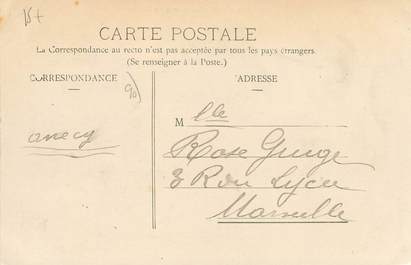 CARTE POSTALE
La Correspondance au recto n'est pas acceptée par tous les pays étrangers.
(Se renseigner à la Poste.)
CORRESPONDANCE
ADRESSE
Mlle
Rose
Marseille